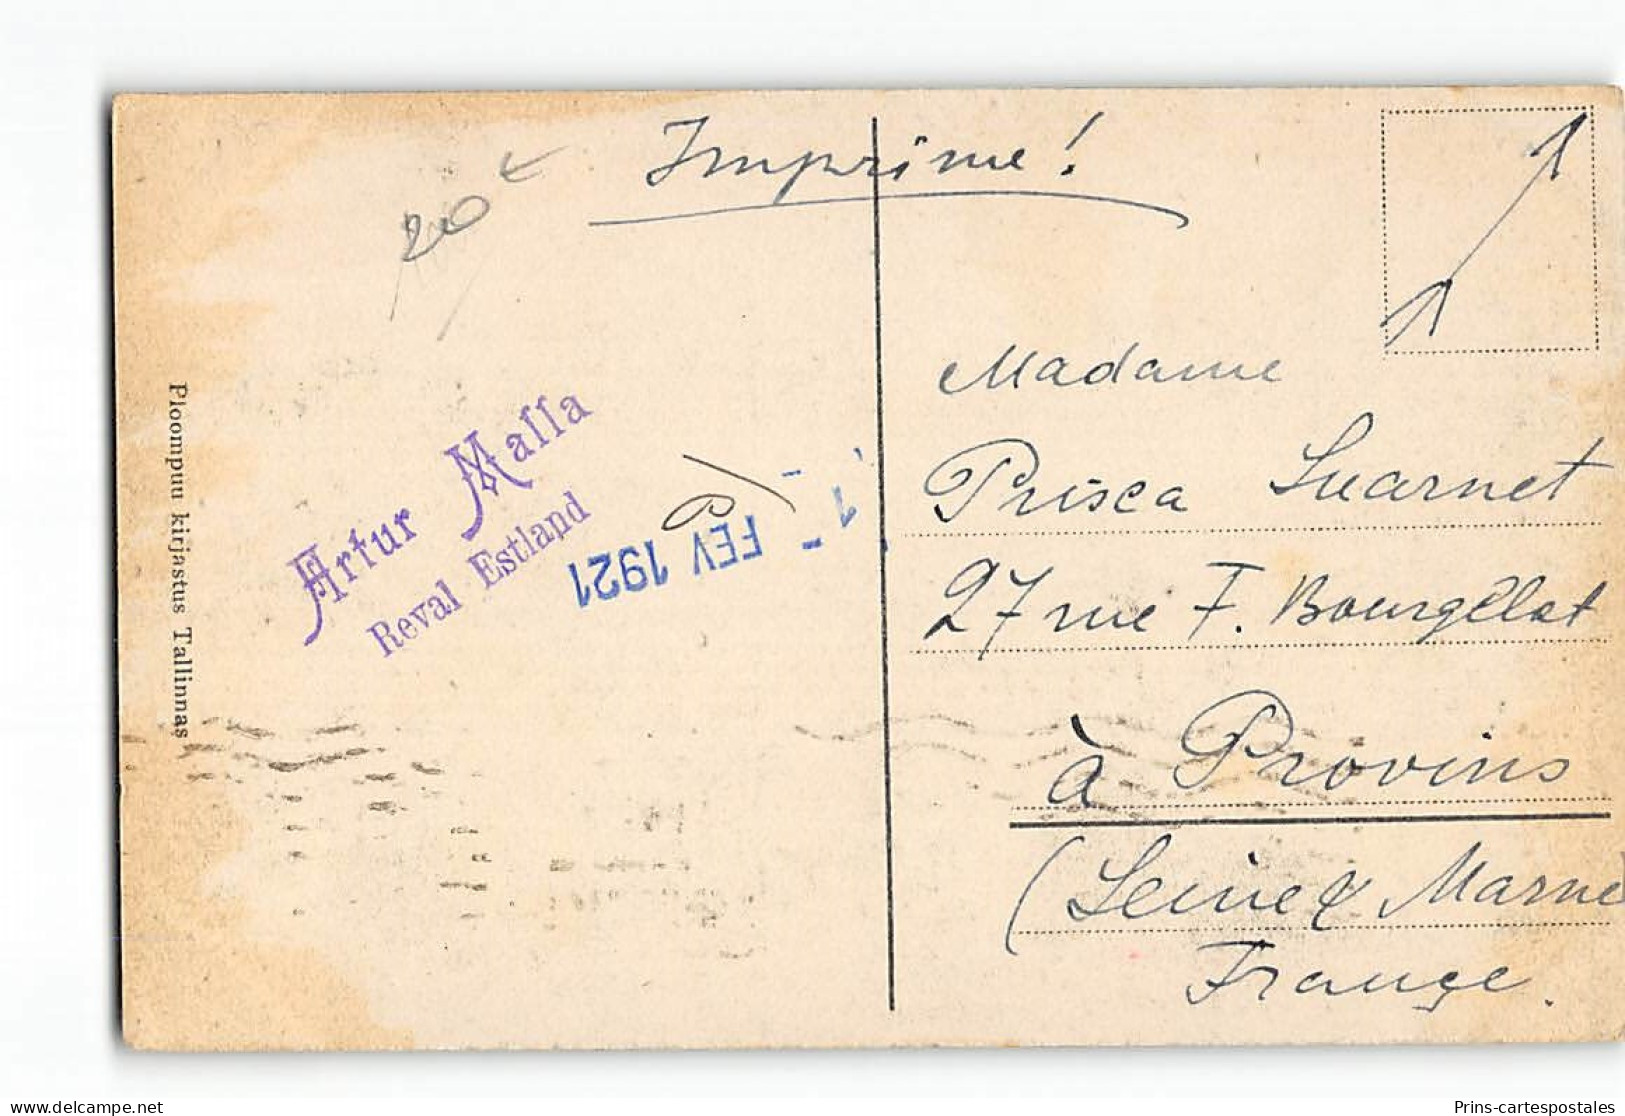 Imprime!
20
Madame
Prisca Suarnet
27 rue F. Bourgelat
à Provins
(Seine & Marne
France.
Artur Malla
Reval Estland
1 - FEV 1921
Ploompuu kirjastus Tallinnas
www.delcampe.net
Prins-cartespostales